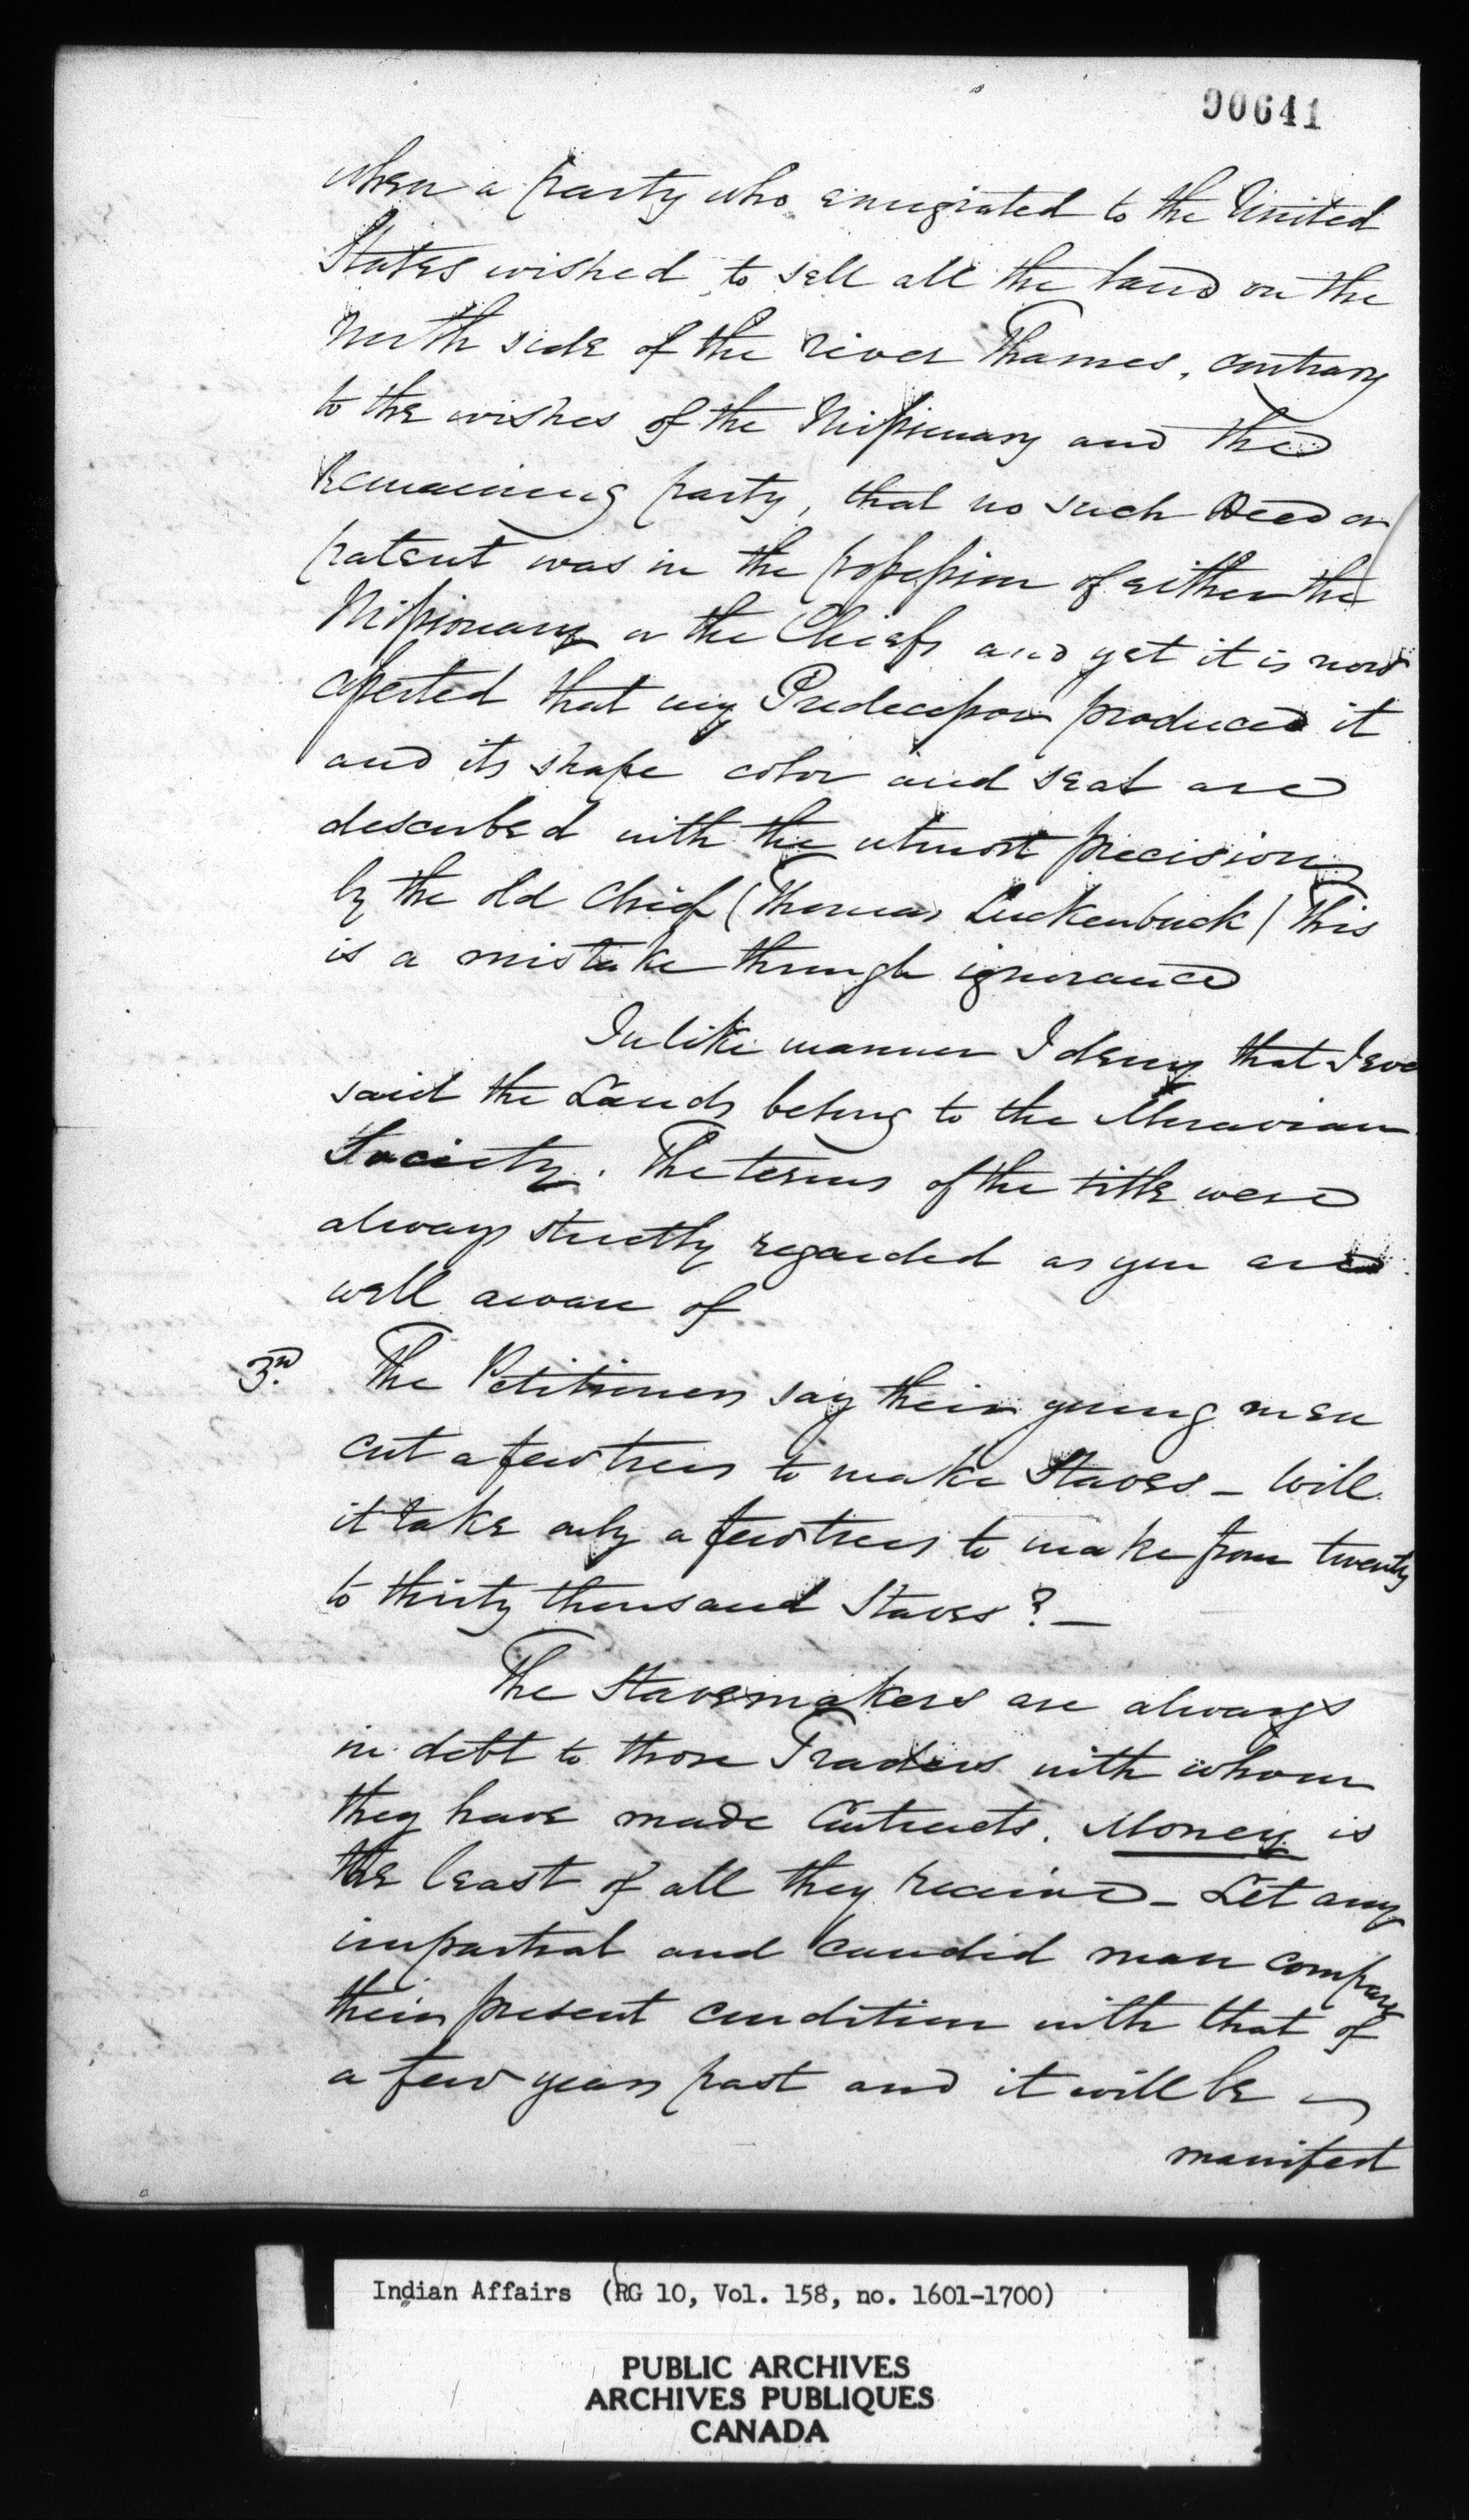 90641
when a party who emigrated to the United
States wished to sell all the land on the
North side of the river Thames, contrary
to the wishes of the Missionary and the
remaining party, that no such Deed or
patent was in the possession of either the
Missionary or the Chiefs and yet it is now
asserted that my Predecessor produced it
and its shape color and seal are
described with the utmost precision
by the old Chief (Thomas Luckenback) This
is a mistake through ignorance
In like manner I deny that I ever
said the Lands belong to the Moravian
Society. The terms of the title were
always strictly regarded as you are
well aware of
3rd. The Petitioners say their young men
cut a few trees to make Staves – Will
it take only a few trees to make from twenty
to thirty thousand Staves? –
The Stavemakers are always
in debt to those Traders with whom
they have made Contracts. Money is
the least of all they receive – Let any
impartial and candid man compare
their present condition with that of
a few years past and it will be
manifest
Indian Affairs (RG 10, Vol. 158, no. 1601-1700)
PUBLIC ARCHIVES
ARCHIVES PUBLIQUES
CANADA